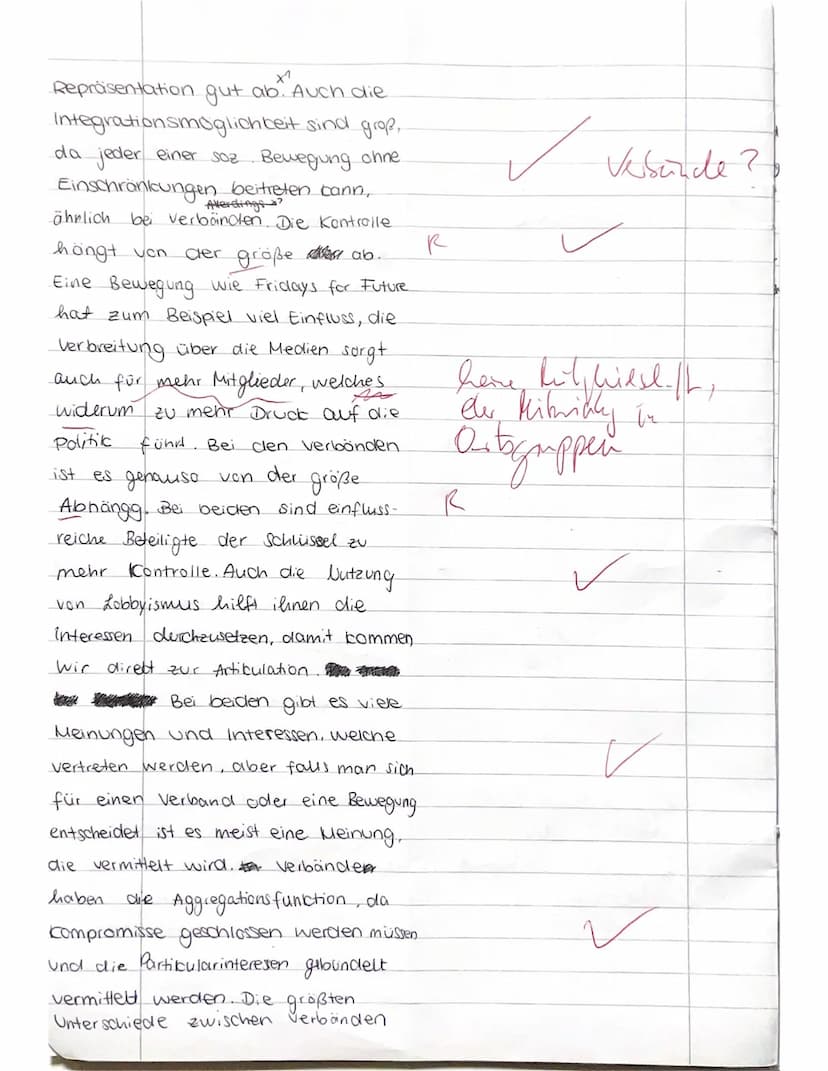 x1
Repräsentation gut ab. Auch die
Integrationsmöglichkeit sind groß,
da jeder einer soz. Bewegung ohne
Verbände?
Einschränkungen beitreten kann,
Allerdings
ähnlich bei Verbänden. Die Kontrolle
hängt von der größe ab.
R
Eine Bewegung wie Fridays for Future
hat zum Beispiel viel Einfluss, die
Verbreitung über die Medien sorgt
auch für mehr Mitglieder, welches
keine Mitgliedschaft,
widerum zu mehr Druck auf die
in
Politik führt. Bei den Verbänden
Ortsgruppen
ist es genauso von der größe
Abhängg. Bei beiden sind einfluss-
R
reiche Beteiligte der Schlüssel zu
mehr Kontrolle. Auch die Nutzung
von Lobbyismus hilft ihnen die
interessen durchzusetzen, damit kommen
wir direkt zur Artikulation.
Bei beiden gibt es viele
Meinungen und Interessen, welche
vertreten werden, aber falls man sich
für einen Verband oder eine Bewegung
entscheidet ist es meist eine Meinung,
die vermittelt wird. Verbänden
haben die Aggregationsfunction, da
kompromisse geschlossen werden müssen
und die Partikularinteresen gebündelt
vermittelt werden. Die größten
Unterschiede zwischen Verbänden